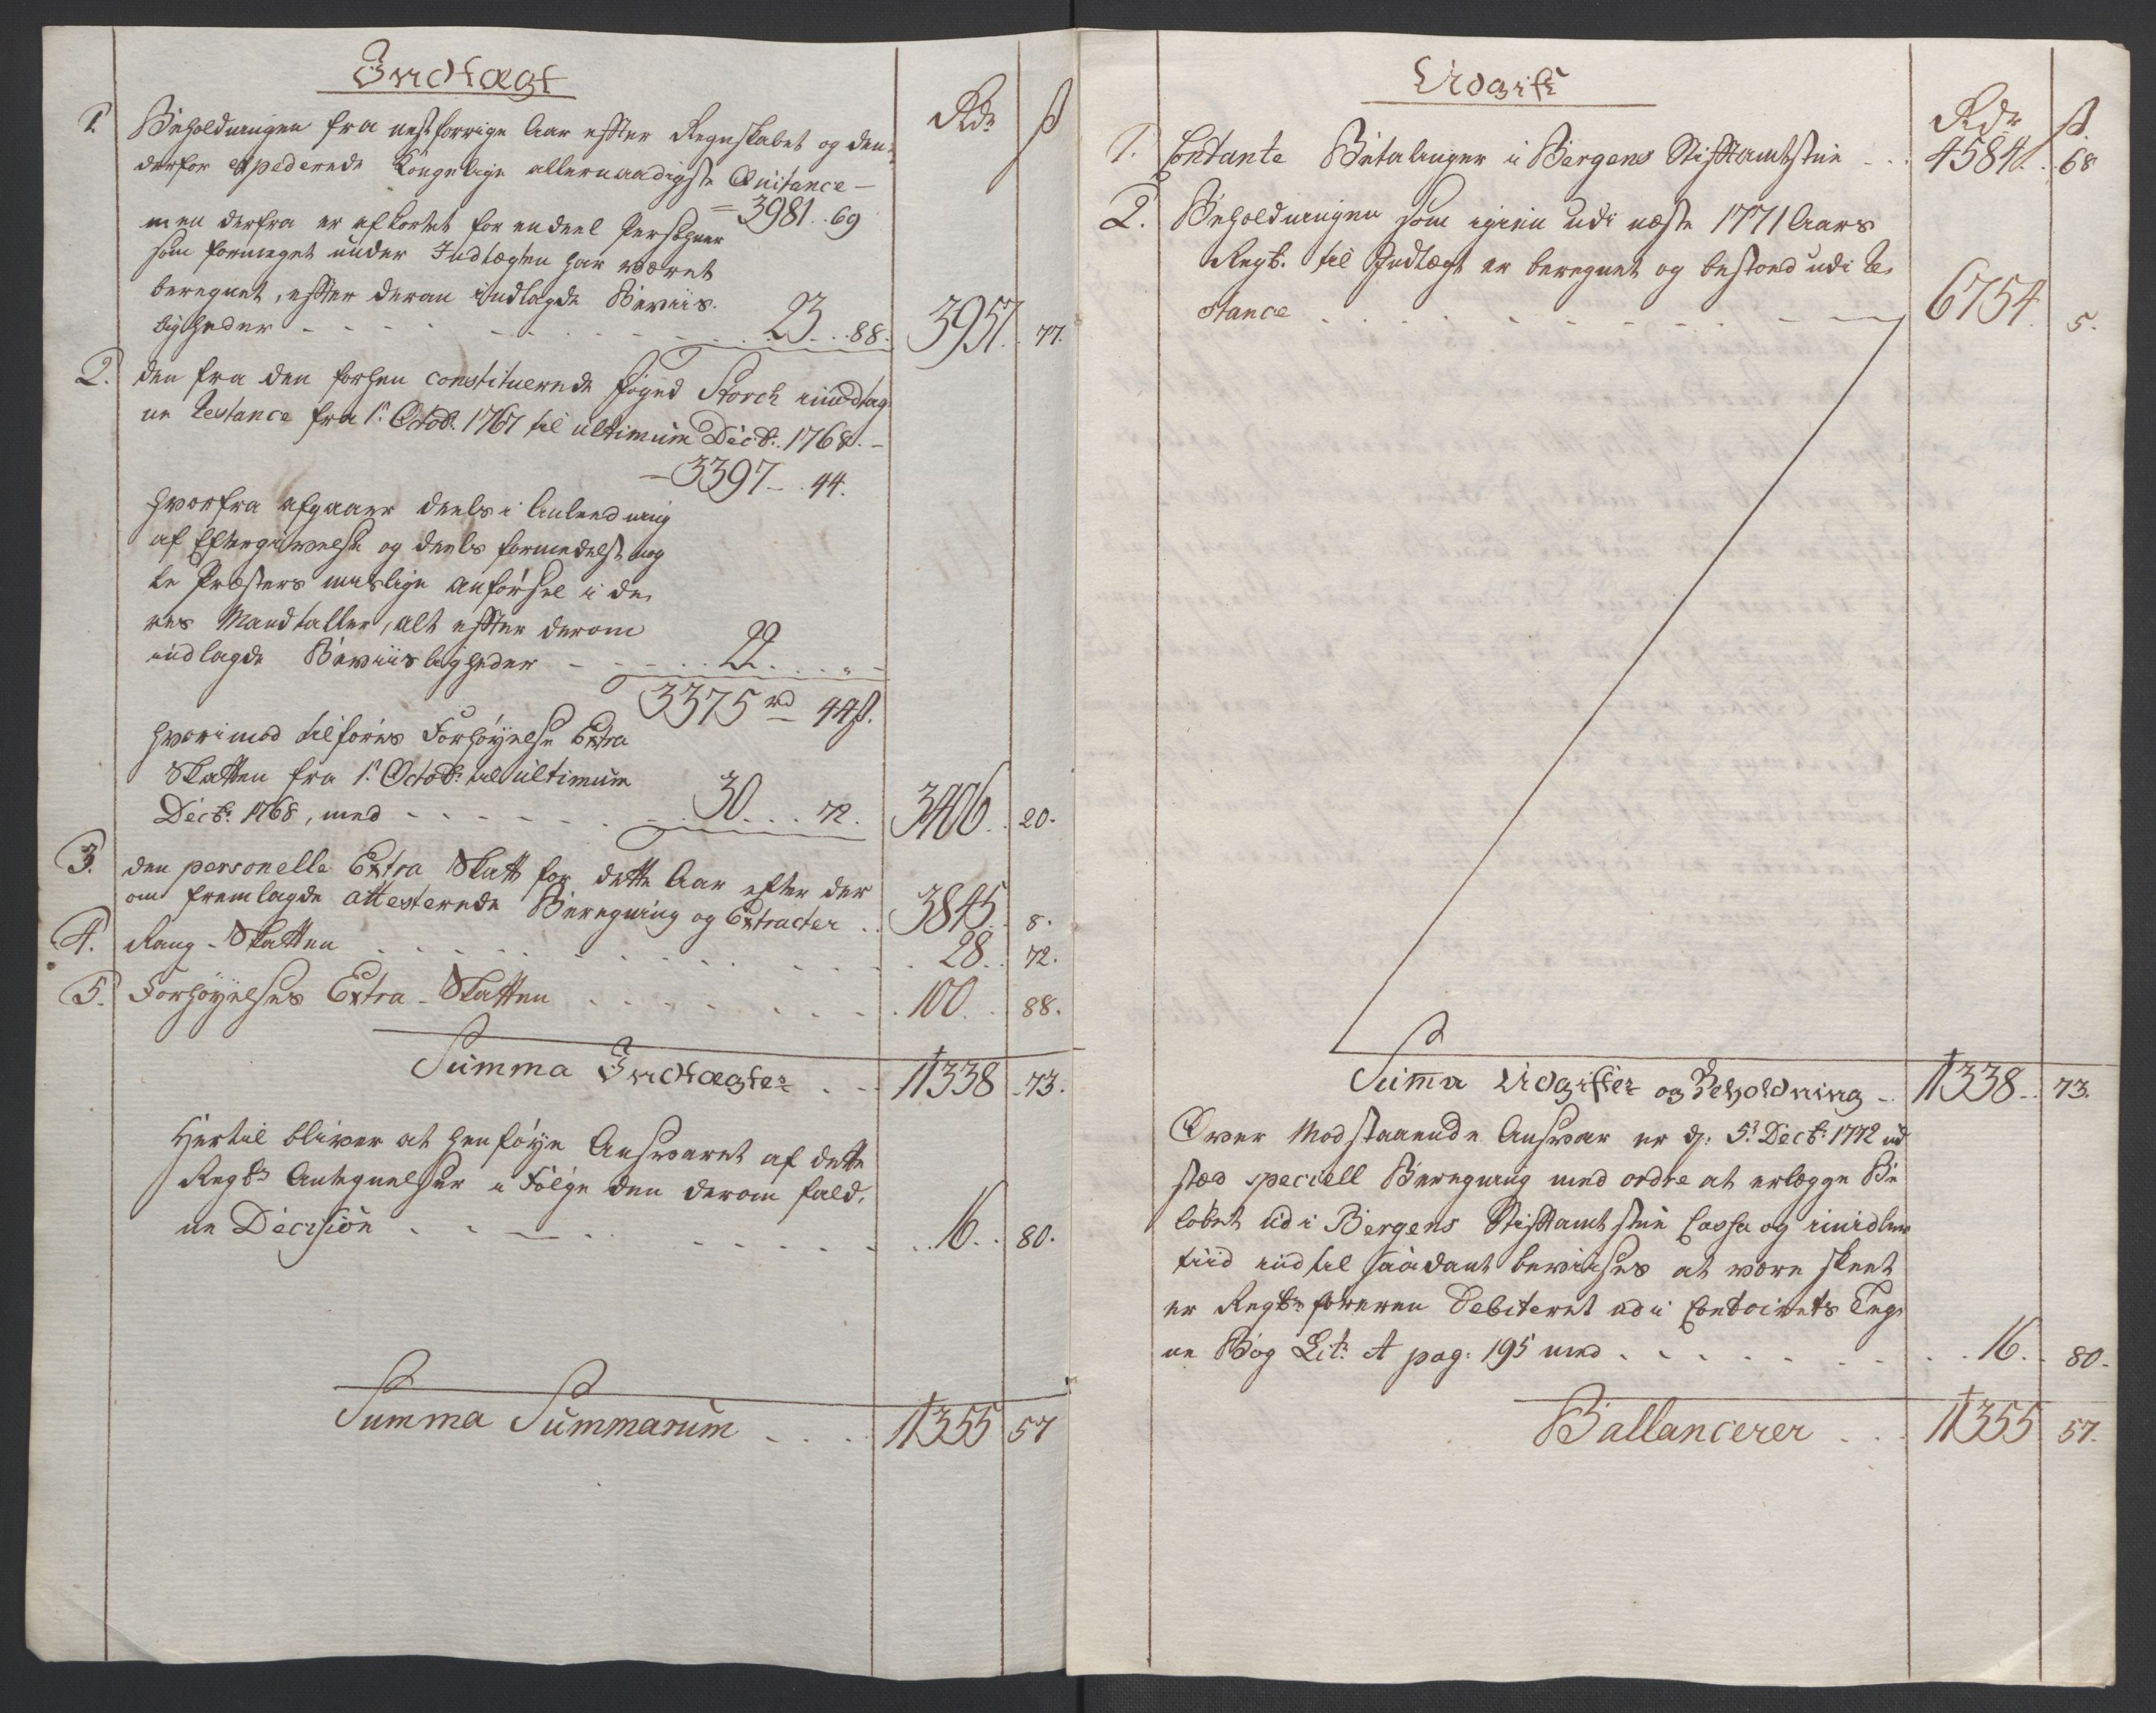 Indtægt
Rdr ß
1. Beholdningen fra nestforrige Aar effter Regnskabet og den
derfor expederede Kongelige allernaadigste Quitance –
= 3981 .. 69
men derfra er afkortet for endeel Persohner
som formeget under Indtægten har været
beregnet, effter deran indlagde Beviis-
ligheder - - - - 23 .. 88. 3957. 77.
2. den fra den forhen constituerede Foged Storch imodtag-
ne Restance fra 1r. Octob. 1767 til ultimum Decbr. 1768. –
– 3397 – . 44.
hvorfra afgaaer deels i Anledning
af Eftergivelse og deels formedelst nog-
le Præsters urigtige anførsel i de-
res Mandtaller, alt effter derom
indlagde Beviisligheder - - - 22. . . „ –
3375 rd 44 ß.
hvorimod tilføres Forhøyelse Extra
Skatten fra 1r. Octobr. til ultimum
Decbr. 1768, med - - - - 30. . . 72. 3406. . 20.
3. den personelle Extra Skatt for dette Aar efter der
om fremlagde attesterede Beregning og Extracter . . 3845. 8.
4. Rang-Skatten - - - - 28. . 72.
5. Forhøyelses Extra-Skatten - - - - 100. . 88.
Summa Indtægter . - - 11338 . 73.
Hertil bliver at henføye Ansvaret af dette
Regbs Antegnelser i Følge den derom fald-
ne Decision - - - - 16. . 80.
Summa Summarum . . . . 11355 57
Udgift
Rdr ß.
1. Contante Betalinger i Bergens Stiftamtstue - . . 4584. . 68
2. Beholdningen som igien udi næste 1771 Aars
Regb. til Indtægt er beregnet og bestoed udi Re-
stance . . . . 6754. 5.
Summa Udgifter og Beholdning - . 11338 . . 73.
Over Modstaaende Ansvar er d: 5t Decbr. 1772 ud
stæd speciell Beregning med ordre at erlægge Be
løbet udi Bergens Stiftamtstue Cassa og imidler
tiid indtil saadant bevises at være skeet
er Regbs føreren Debiteret udi Contoirets Teg-
ne Bog Litr. A pag: 195 med . - - - . . 16. . 80.
Ballancerer . . . 11355 57.